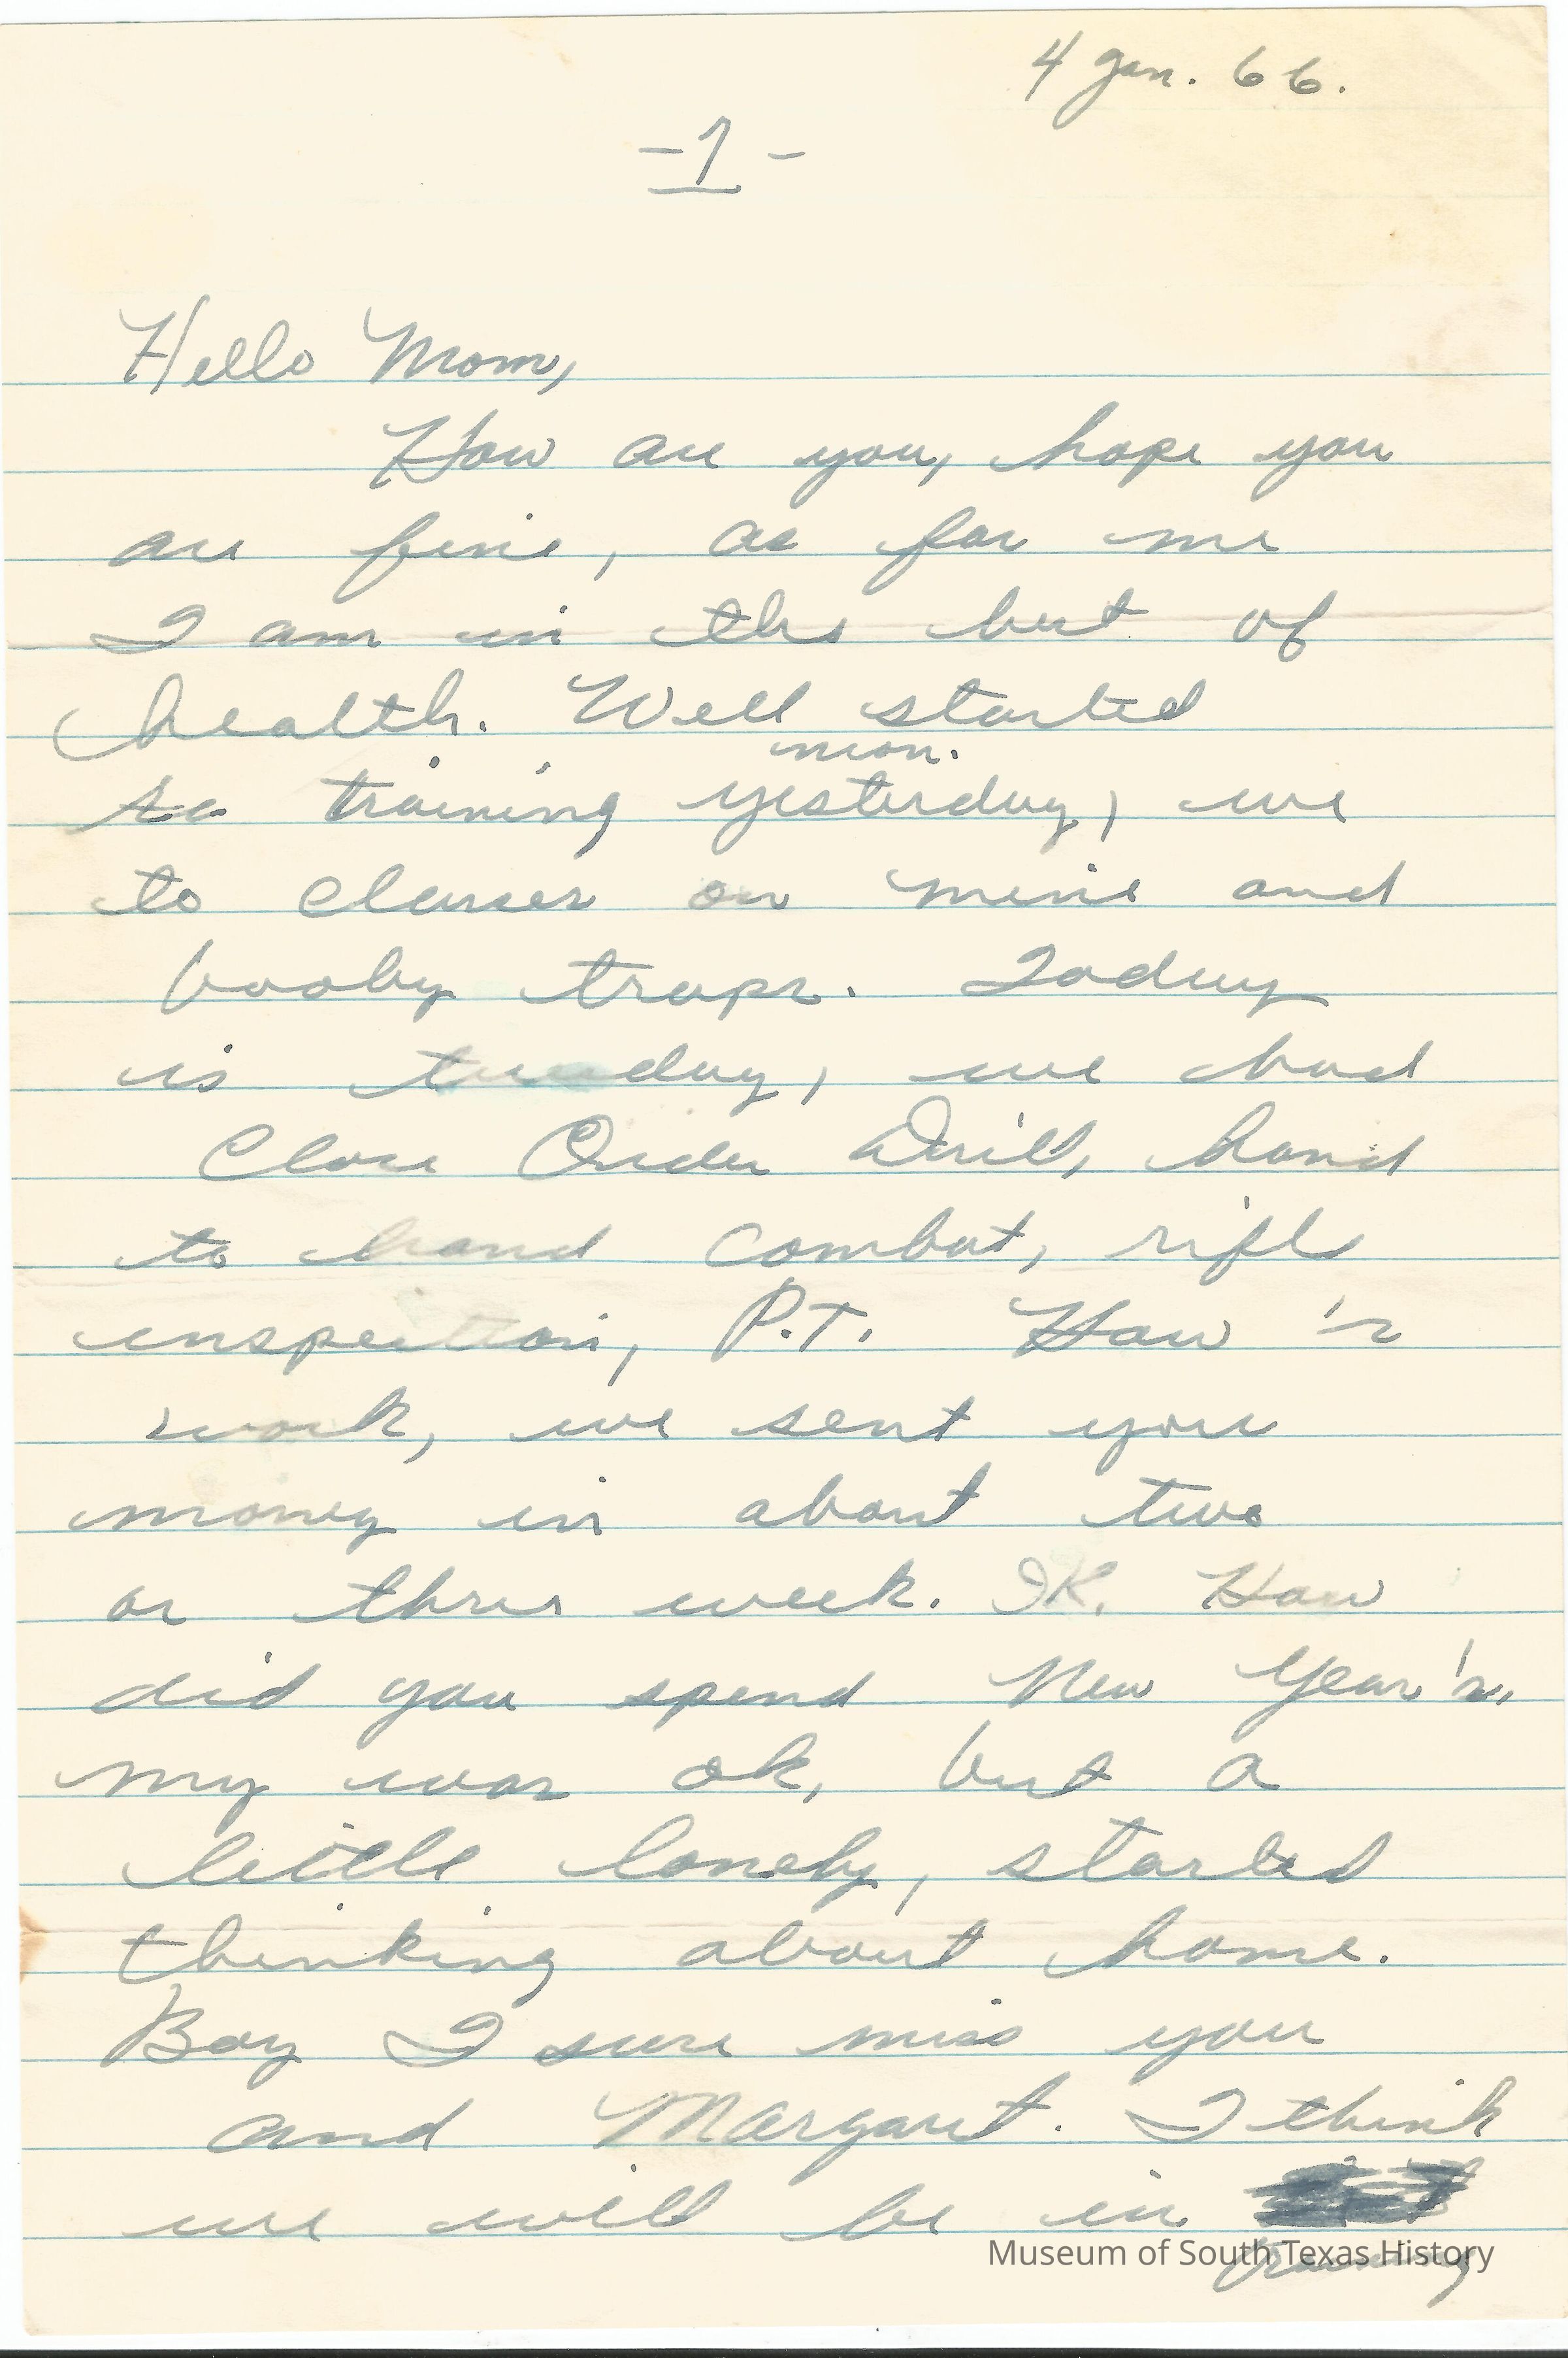 4 Jan. 66.
-1-
Hello Mom,
How are you, hope you
are fine, as for me
I am in the best of
health. Well started
mon.
training yesterday, we
to classes on mine and
booby traps. Today
is tuesday, we had
Close Order Drill, hand
to hand combat, rifle
inspection, P.T. How 's
work, we sent you
money in about two
or three week. OK. How
did you spend New Year's,
my was ok, but a
little lonely, started
thinking about home.
Boy I sure miss you
and Margaret. I think
we will be in
training
Museum of South Texas History